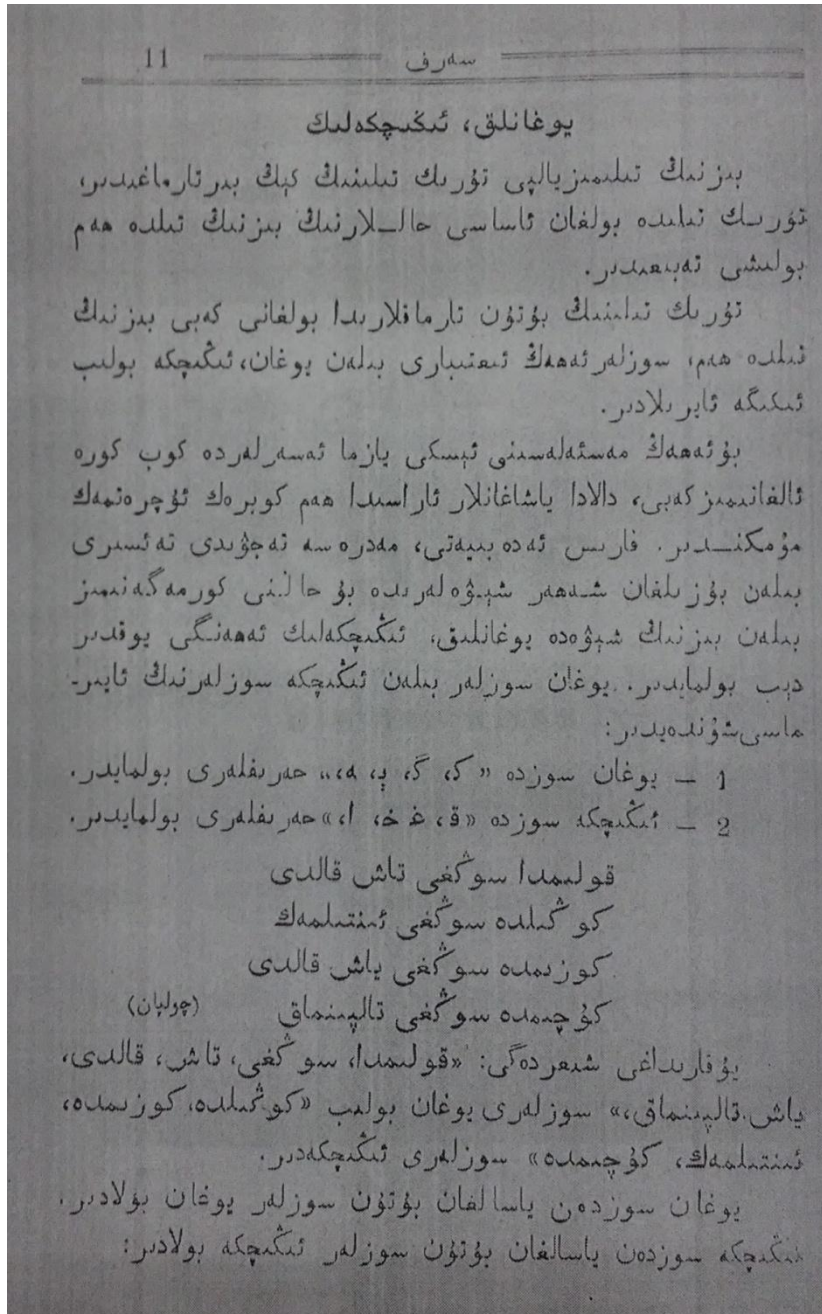 سەرف 11
يوغانلق، ئىڭىچكەلىك
بىزنىڭ تىلىمىزيالپى تۈرىك تىلىنىڭ كېڭ بىرتارماغىدىر،
تۈرىك تىلىدە بولغان ئاساسى حالـلارنىڭ بىزنىڭ تىلدە ھەم
بولىشى تەبىعىدىر.
تۈرىك تىلىنىڭ بۈتۈن تارماقلارىدا بولغانى كەبى بىزنىڭ
تىلدە ھەم، سوزلەرئەھەڭ ئىعتىبارى بىلەن يوغان، ئىڭىچكە بولىب
ئىككىگە ئايرىلادىر.
بۇئەھەڭ مەسئەلەسىنى ئېسكى يازما ئەسەرلەردە كوب كورە
ئالغانىمىز كەبى، دالادا ياشاغانلار ئاراسىدا ھەم كوبرەك ئۇچرەتمەك
مۇمكىنـدىر. فارىس ئەدەبىيەتى، مەدرەسە تەجۋىدى تەئسىرى
بىلەن بۇزىلغان شەھەر شېۋەلەرىدە بۇ حالنى كورمەگەنىمىز
بىلەن بىزنىڭ شېۋەدە يوغانلىق، ئىڭىچكەلىك ئەھەنگى يوقدىر
دېب بولمايدىر. يوغان سوزلەر بىلەن ئىڭىچكە سوزلەرنىڭ ئايىرـ
ماسى شۇندەيدىر:
1 — يوغان سوزدە «ك، گ، ې، ە،» حەرىفلەرى بولمايدر.
2 — ئىڭىچكە سوزدە «ق، غ خ، ا،» حەرىفلەرى بولمايدىر.
قولىمدا سوڭغى تاش قالدى
كوڭىلدە سوڭغى ئىنتىلمەك
كوزىمدە سوڭغى ياش قالدى
كۇچىمدە سوڭغى تالپىنماق (چولپان)
يۇقارىداغى شىعردەگى: «قولىمدا، سوڭغى، تاش، قالدى،
ياش. تالپىنماق،» سوزلەرى يوغان بولىب «كوڭىلدە، كوزىمدە،
ئىنتىلمەك، كۇچىمدە» سوزلەرى ئىڭىچكەدىر.
يوغان سوزدەن ياسالغان بۇتۇن سوزلەر يوغان بۇلادىر.
ئىڭىچكە سوزدەن ياسالغان بۇتۇن سوزلەر ئىڭىچكە بولادىر: